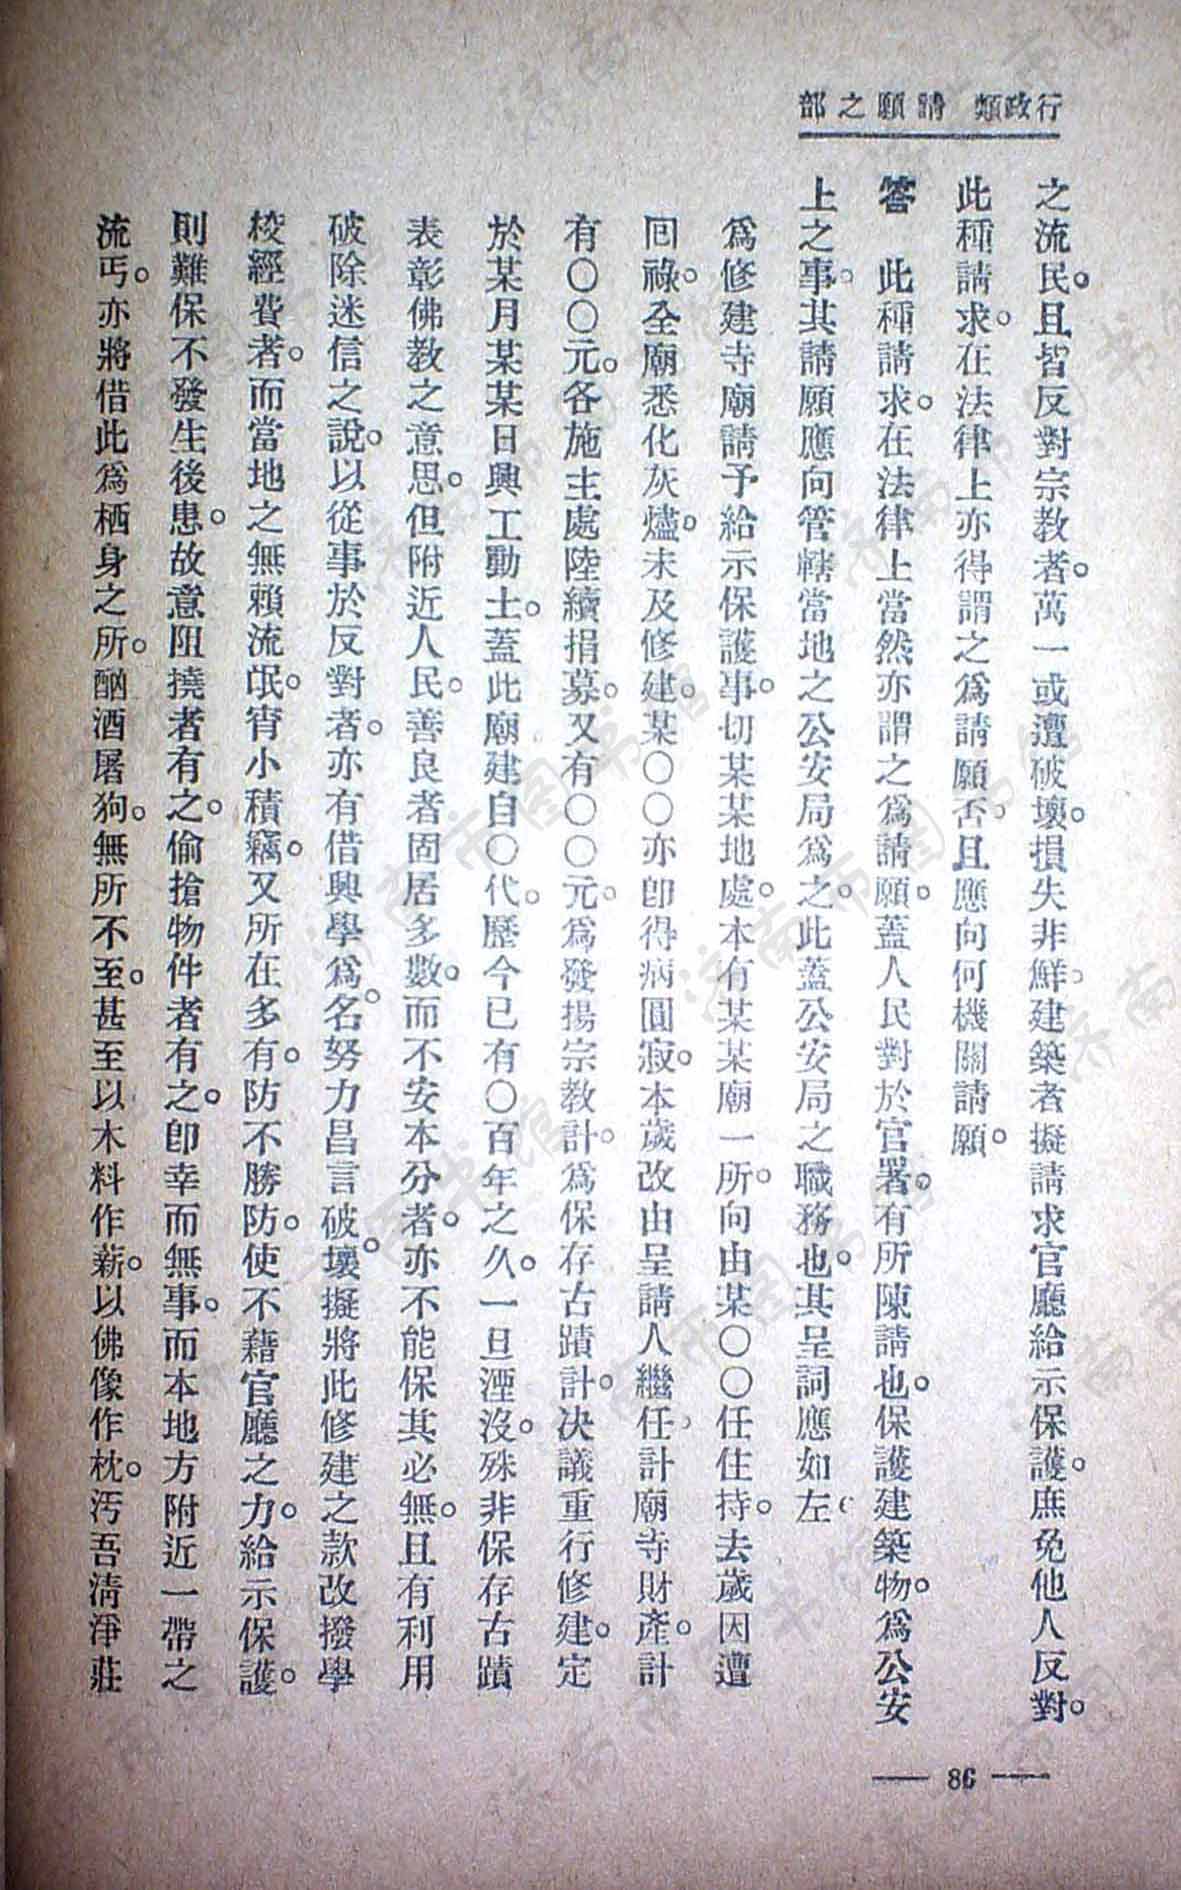 行政類 請願之部
之流民。且皆反對宗教者。萬一或遭破壞。損失非鮮。建築者擬請求官廳給示保護。庶免他人反對。
此種請求。在法律上亦得謂之爲請願否。且應向何機關請願。
答 此種請求。在法律上當然亦謂之爲請願。蓋人民對於官署。有所陳請也。保護建築物。爲公安
上之事。其請願應向管轄當地之公安局爲之。此蓋公安局之職務也。其呈詞應如左。
爲修建寺廟請予給示保護事。切某某地處。本有某某廟一所。向由某〇〇任住持。去歲因遭
回祿。全廟悉化灰燼。未及修建。某〇〇亦卽得病圓寂。本歲改由呈請人繼任、計廟寺財產。計
有〇〇元。各施主處陸續捐募。又有〇〇元。爲發揚宗教計。爲保存古蹟計。决議重行修建。定
於某月某某日興工動土。蓋此廟建自〇代。歷今已有〇百年之久。一旦湮沒。殊非保存古蹟
表彰佛教之意思。但附近人民。善良者固居多數。而不安本分者。亦不能保其必無。且有利用
破除迷信之說。以從事於反對者。亦有借興學爲名。努力昌言破壞。擬將此修建之款改撥學
校經費者。而當地之無賴流氓。宵小積竊。又所在多有。防不勝防。使不藉官廳之力。給示保護。
則難保不發生後患。故意阻撓者有之。偷搶物件者有之。卽幸而無事。而本地方附近一帶之
流丐。亦將借此爲栖身之所。酗酒屠狗。無所不至。甚至以木料作薪。以佛像作枕。汚吾淸淨莊
— 86 —
济南市图书馆